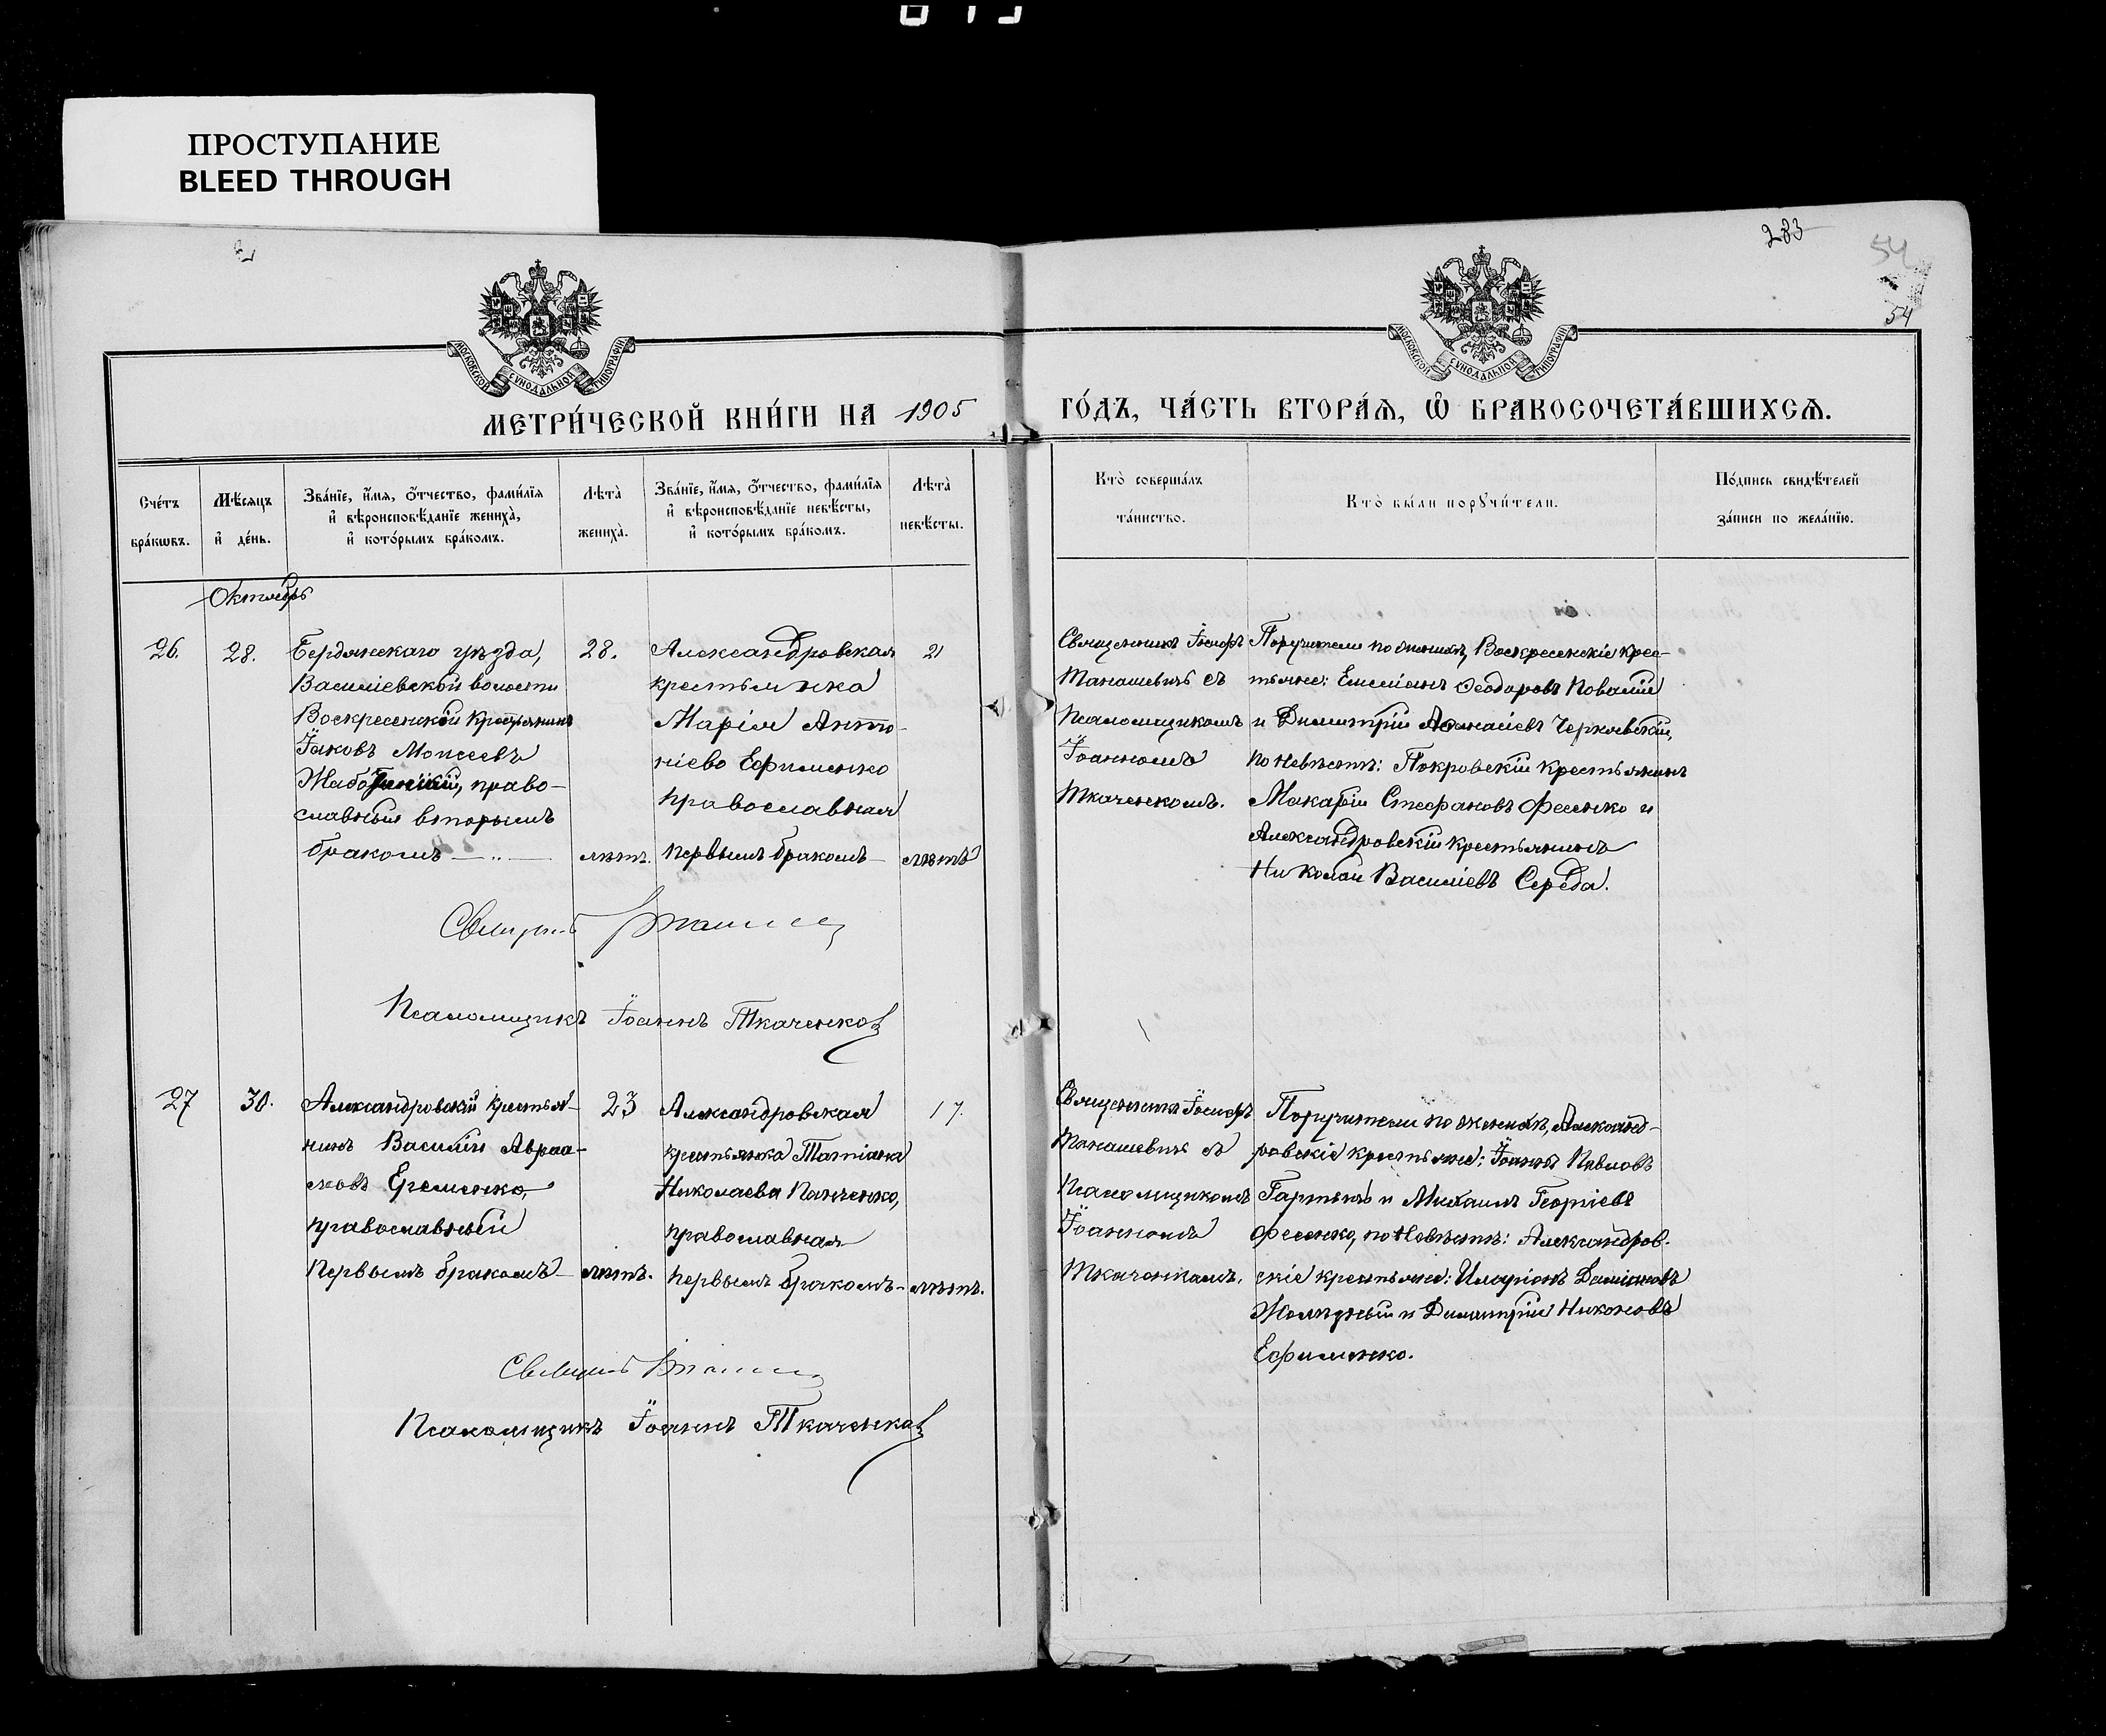 ПРОСТУПАНИЕ
BLEED THROUGH
283
54
54
МОСКОВСКОЙ СѴНОДАЛЬНОЙ ТИПОГРАФІИ
МОСКОВСКОЙ СѴНОДАЛЬНОЙ ТИПОГРАФІИ
МЕТРИ́ЧЕСКОЙ КНИ́ГИ НА 1905 ГО́ДЪ, ЧА́СТЬ ВТОРА́Ѧ, Ѽ БРАКОСОЧЕТА́ВШИХСѦ.
Сче́тъ бра́кѡвъ.
Мѣ́сяцъ и҆ де́нь.
Зва́нїе, и҆́мя, о҆́тчество, фами́лїя
и҆ вѣроисповѣ́данїе жениха̀,
и҆ кото́рымъ бра́комъ.
Лѣта̀
жениха̀.
Зва́нїе, и҆́мя, о҆́тчество, фами́лїя
и҆ вѣроисповѣ́данїе невѣ́сты,
и҆ кото́рымъ бра́комъ.
Лѣта̀
невѣ́сты.
Кто̀ соверша́лъ
та́инство.
Кто̀ бы́ли порꙋчи́тели.
По́дпись свидѣ́телей
за́писи по жела́нїю.
Октябрь
26.
28.
Бердянскаго уѣзда,
Василіевской волости
Воскресенскій крестьянинъ
Іаковъ Моисеевъ
право-
славный вторымъ
бракомъ — „ —
28.
лѣтъ.
Александровская
крестьянка
Марія Анто-
ніева Ефименко
православная
первымъ бракомъ —
21
лѣтъ
Священникъ Іосифъ
Манашевичъ съ
Псаломщикомъ
Іоанномъ
Ткаченкомъ.
Поручители по женихѣ, Воскресенскіе крес-
тьяне: Емеліанъ Ѳеодоровъ Ковалій
и Димитрій Аѳанасіевъ Чернявскій,
по невѣстѣ: Покровскій крестьянинъ
Макарій Стефановъ Фесенко и
Александровскій крестьянинъ
Николай Василіевъ Середа.
Псаломщикъ Іоаннъ Ткаченко
27
30.
Александровскій крестья-
нинъ Василій Авраа-
мовъ Еременко,
православный
первымъ бракомъ —
23
лѣтъ.
Александровская
крестьянка Татіана
Николаева Панченко,
православная
первымъ бракомъ —
17.
лѣтъ.
Священникъ Іосифъ
Манашевичъ съ
Псаломщикомъ
Іоанномъ
Ткаченкомъ.
Поручители по женихѣ, Александ-
ровскіе крестьяне: Іоаннъ Павловъ
и Михаилъ Георгіевъ
Фесенко, по невѣстѣ: Александров-
скіе крестьяне: Иларіонъ Даміановъ
и Димитрій Никоновъ
Ефименко.
Псаломщикъ Іоаннъ Ткаченко